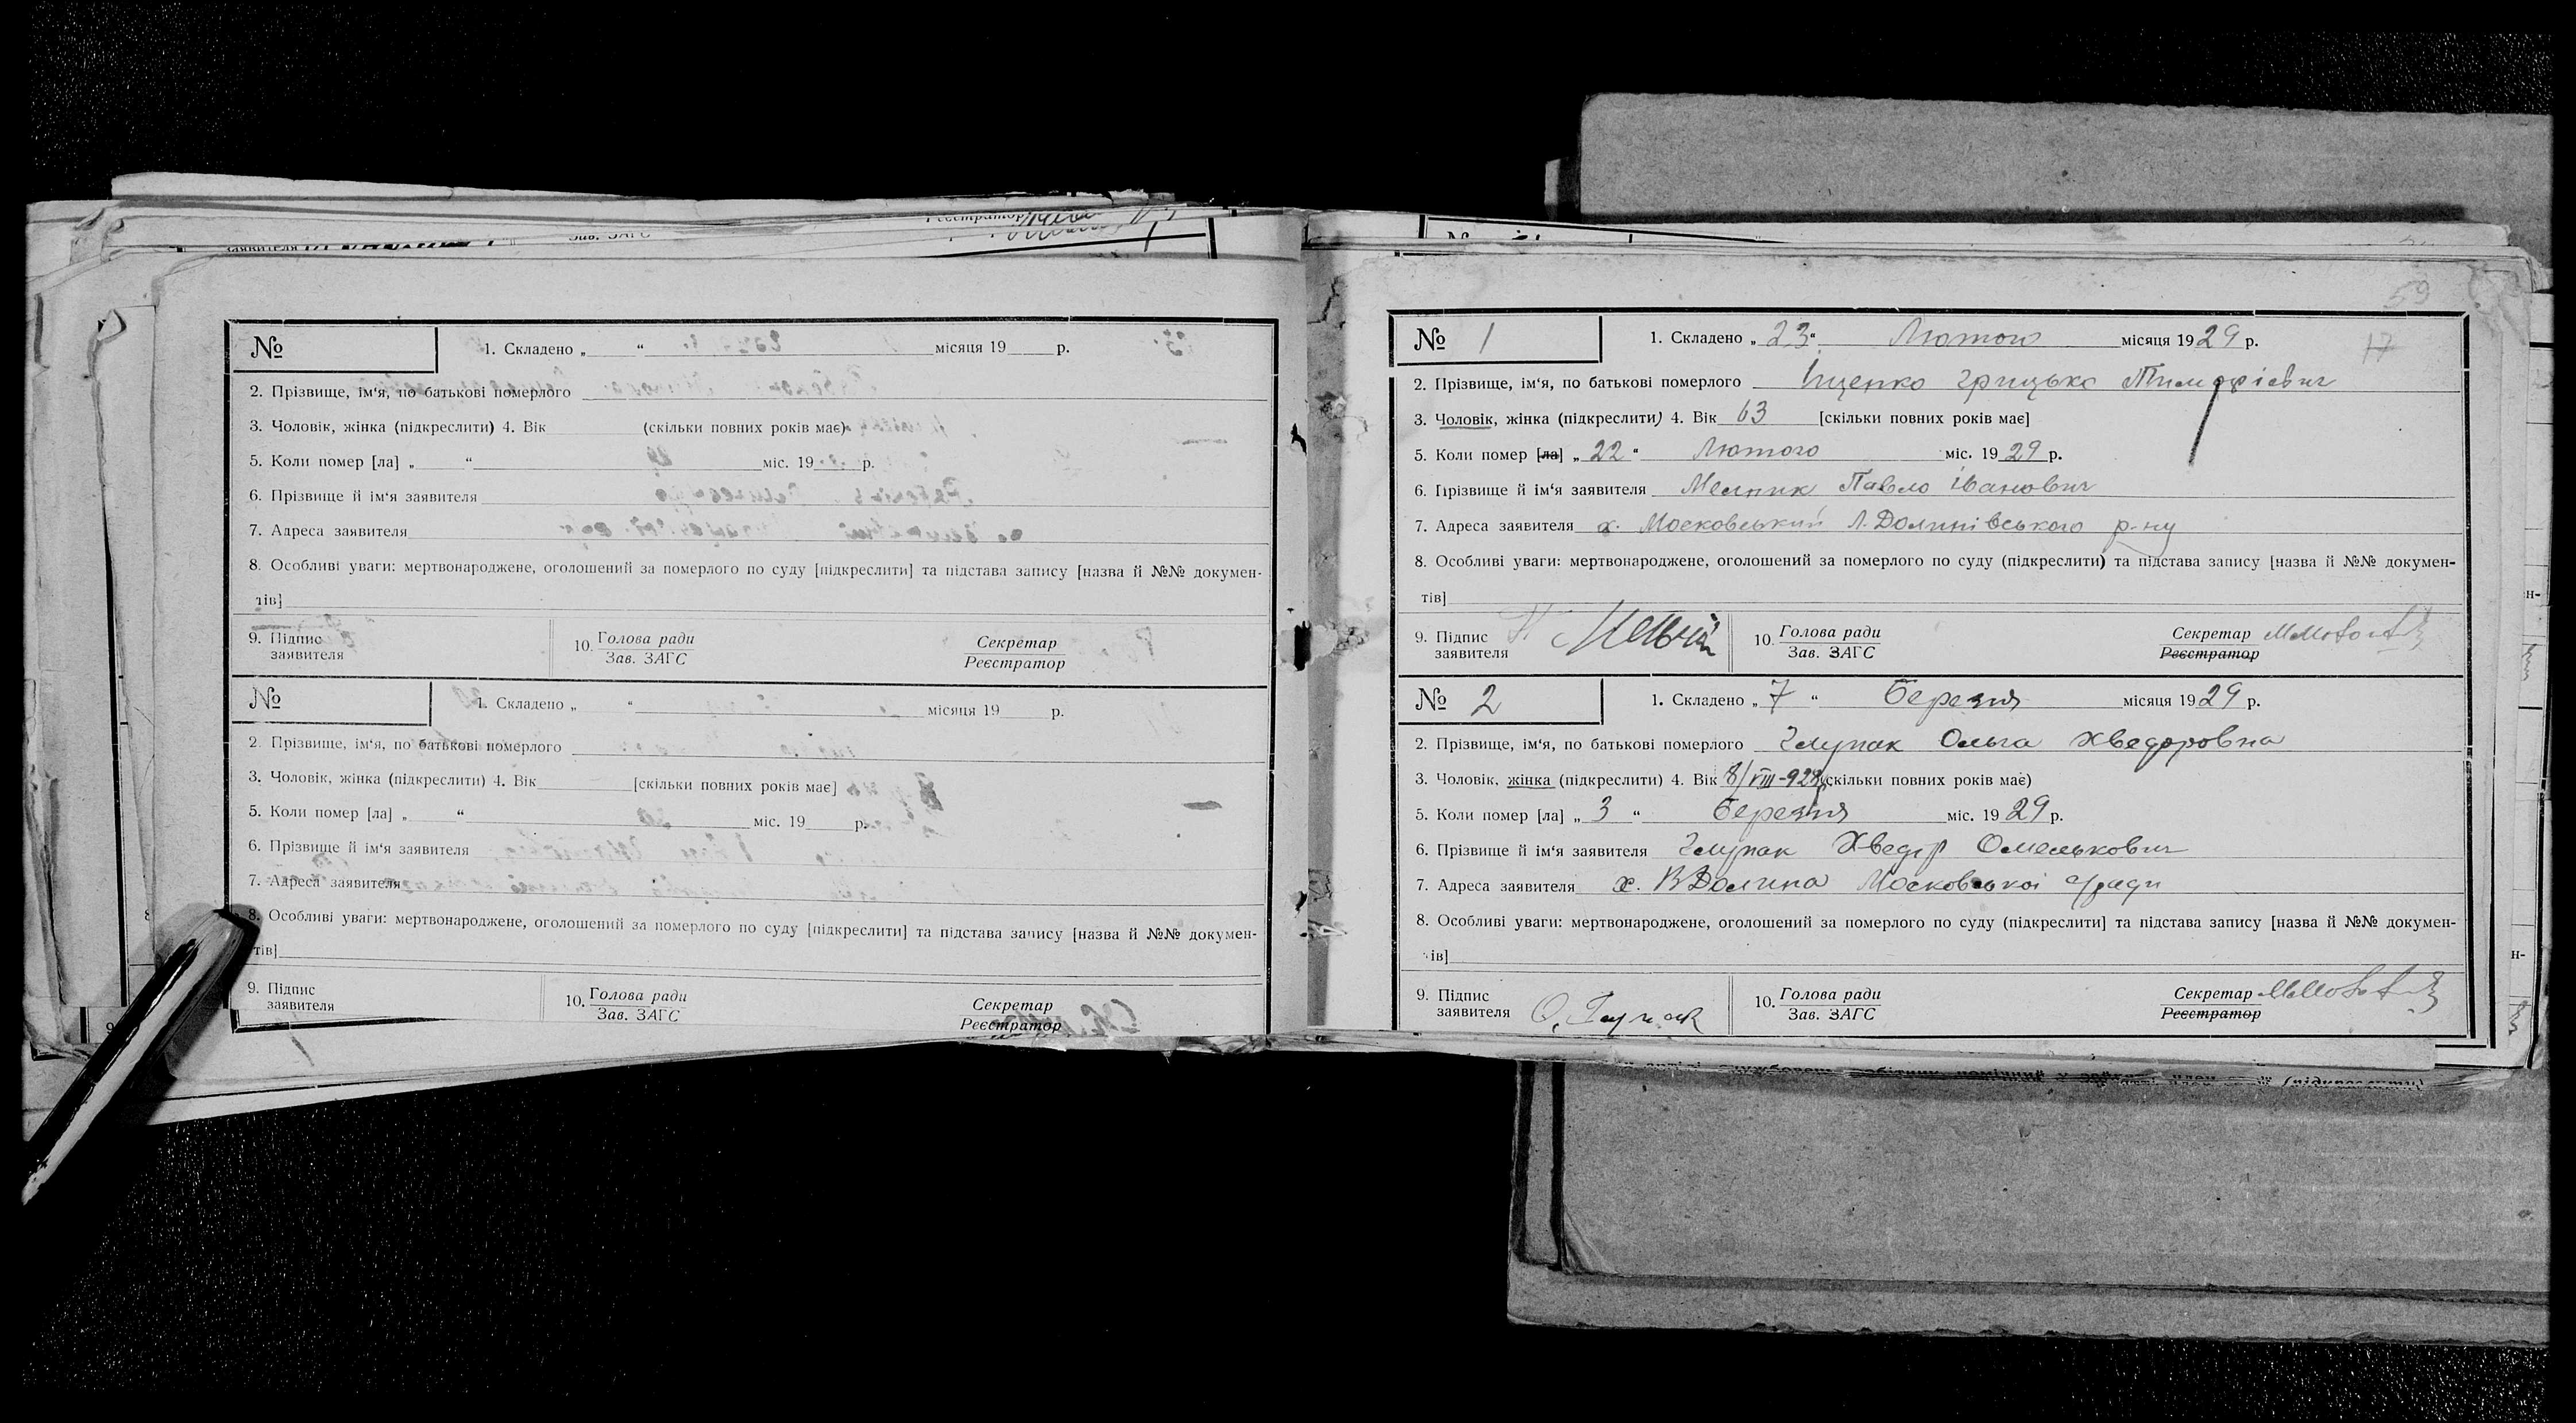 №
1. Складено „ “ місяця 19 р.
2. Прізвище, ім‘я, по батькові померлого
3. Чоловік, жінка (підкреслити) 4. Вік (скільки повних років має)
5. Коли помер [ла] „ “ міс. 19 р.
6. Прізвище й ім‘я заявителя
7. Адреса заявителя
8. Особливі уваги: мертвонароджене, оголошений за померлого по суду [підкреслити] та підстава запису [назва й №№ докумен-
тів]
9. Підпис заявителя 10. Голова ради Зав. ЗАГС Секретар Реєстратор
№
1. Складено „ “ місяця 19 р.
2. Прізвище, ім‘я, по батькові померлого
3. Чоловік, жінка (підкреслити) 4. Вік [скільки повних років має]
5. Коли помер [ла] „ “ міс. 19 р.
6. Прізвище й ім‘я заявителя
7. Адреса заявителя
8. Особливі уваги: мертвонароджене, оголошений за померлого по суду [підкреслити] та підстава запису [назва й №№ докумен-
тів]
9. Підпис заявителя 10. Голова ради Зав. ЗАГС Секретар Реєстратор
59
17
№ 1
1. Складено „23“ Лютого місяця 1929 р.
2. Прізвище, ім‘я, по батькові померлого Іщенко Грицько Тимофієвич
3. Чоловік, жінка (підкреслити) 4. Вік 63 [скільки повних років має]
5. Коли помер [ла] „22“ Лютого міс. 1929 р.
6. Прізвище й ім‘я заявителя Мельник Павло Іванович
7. Адреса заявителя х. Московський Л. Долинівського р-ну
8. Особливі уваги: мертвонароджене, оголошений за померлого по суду (підкреслити) та підстава запису [назва й №№ докумен-
тів]
9. Підпис заявителя 10. Голова ради Зав. ЗАГС Секретар Реєстратор
№ 2
1. Складено „7“ березня місяця 1929 р.
2. Прізвище, ім‘я, по батькові померлого Глупак Ольга Хведоровна
3. Чоловік, жінка (підкреслити) 4. Вік 8/VIII-928 (скільки повних років має)
5. Коли помер [ла] „3“ березня міс. 1929 р.
6. Прізвище й ім‘я заявителя Глупак Хведір Омелькович
7. Адреса заявителя х. ВДолина Московської с/ради
8. Особливі уваги: мертвонароджене, оголошений за померлого по суду (підкреслити] та підстава запису [назва й №№ докумен-
ів]
9. Підпис заявителя Глупак 10. Голова ради Зав. ЗАГС Секретар Реєстратор